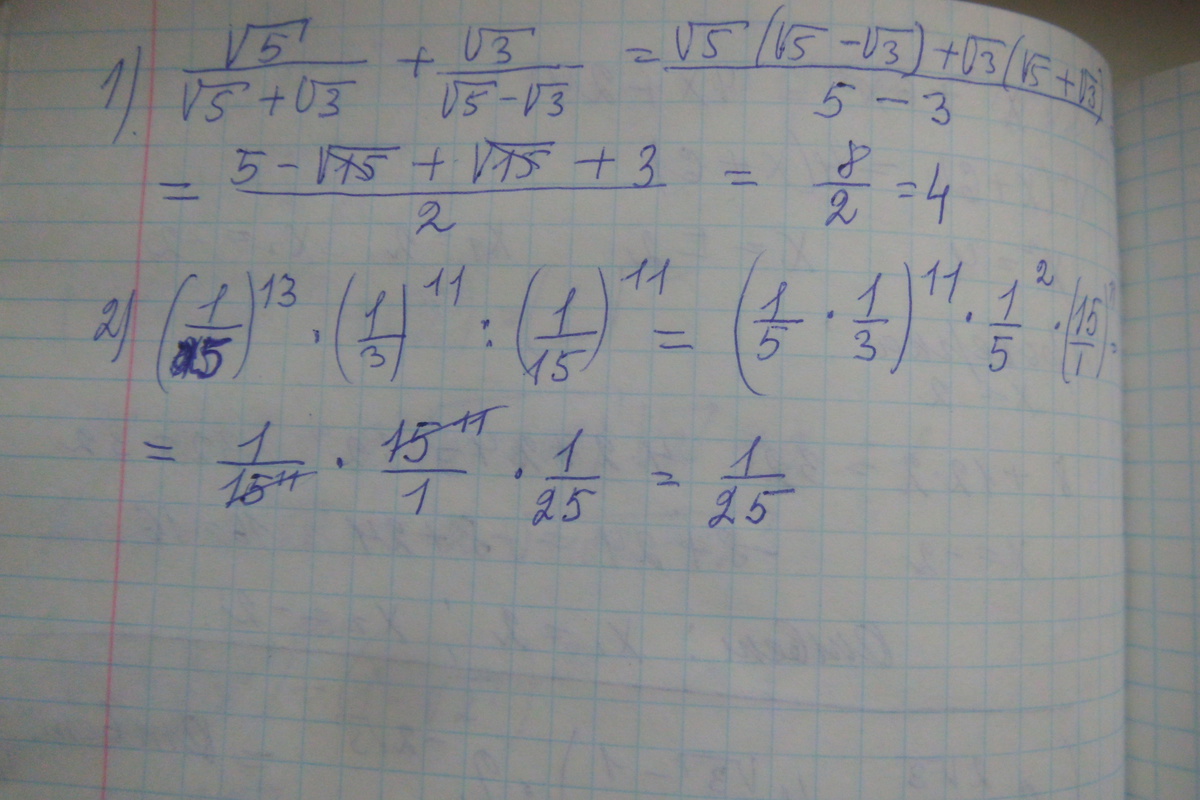 1). √5/(√5 + √3) + √3/(√5 - √3) = (√5 (√5 - √3) + √3 (√5 + √3))/(5 - 3)
= (5 - √15 + √15 + 3)/2 = 8/2 = 4
2) (1/5)^13 · (1/3)^11 : (1/15)^11 = (1/5 · 1/3)^11 · 1/5^2 · (15/1)^11 =
= 1/15^11 · 15^11/1 · 1/25 = 1/25